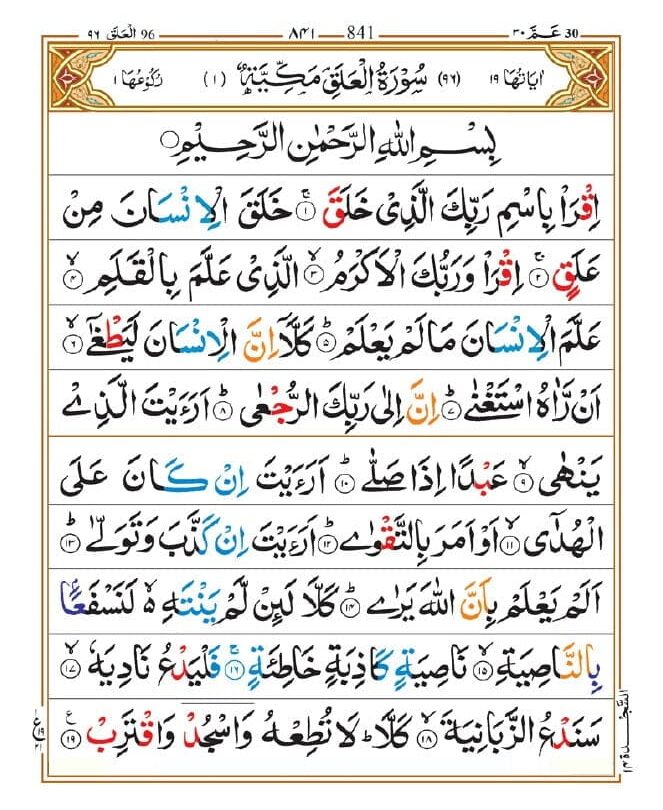 ٩٦ العلق 96 ٨٤١ 841 ٣٠ عـم 30
اٰيَاتُهَا ١٩ (٩٦) سُوْرَةُ الْعَلَقِ مَكِّيَّةٌ (١) رُكُوْعُهَا ١
بِسْمِ اللّٰهِ الرَّحْمٰنِ الرَّحِيْمِ ○
اِقْرَاْ بِاسْمِ رَبِّكَ الَّذِىْ خَلَقَ ۚ ١ خَلَقَ الْاِنْسَانَ مِنْ
عَلَقٍ ۚ ٢ اِقْرَاْ وَرَبُّكَ الْاَكْرَمُ ۙ ٣ الَّذِىْ عَلَّمَ بِالْقَلَمِ ۙ ٤
عَلَّمَ الْاِنْسَانَ مَا لَمْ يَعْلَمْ ؕ ٥ كَلَّاۤ اِنَّ الْاِنْسَانَ لَيَطْغٰٓى ۙ ٦
اَنْ رَّاٰهُ اسْتَغْنٰى ؕ ٧ اِنَّ اِلٰى رَبِّكَ الرُّجْعٰى ؕ ٨ اَرَءَيْتَ الَّذِىْ
يَنْهٰى ۙ ٩ عَبْدًا اِذَا صَلّٰى ؕ ١٠ اَرَءَيْتَ اِنْ كَانَ عَلَى
الْهُدٰٓى ۙ ١١ اَوْ اَمَرَ بِالتَّقْوٰى ؕ ١٢ اَرَءَيْتَ اِنْ كَذَّبَ وَتَوَلّٰى ؕ ١٣
اَلَمْ يَعْلَمْ بِاَنَّ اللّٰهَ يَرٰى ؕ ١٤ كَلَّا لَئِنْ لَّمْ يَنْتَهِ ۙ۬ لَنَسْفَعًۢا
بِالنَّاصِيَةِ ۙ ١٥ نَاصِيَةٍ كَاذِبَةٍ خَاطِئَةٍ ۚ ١٦ فَلْيَدْعُ نَادِيَهٗ ۙ ١٧
سَنَدْعُ الزَّبَانِيَةَ ۙ ١٨ كَلَّا ؕ لَا تُطِعْهُ وَاسْجُدْ وَاقْتَرِبْ ١٩
ع ١٩
السَّجْدَة ١٤